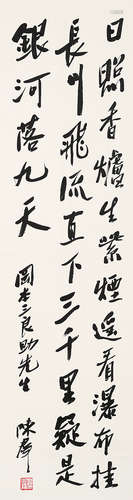 日照香爐生紫煙遥看瀑布挂
長川飛流直下三千里疑是
銀河落九天
岡本三良助先生